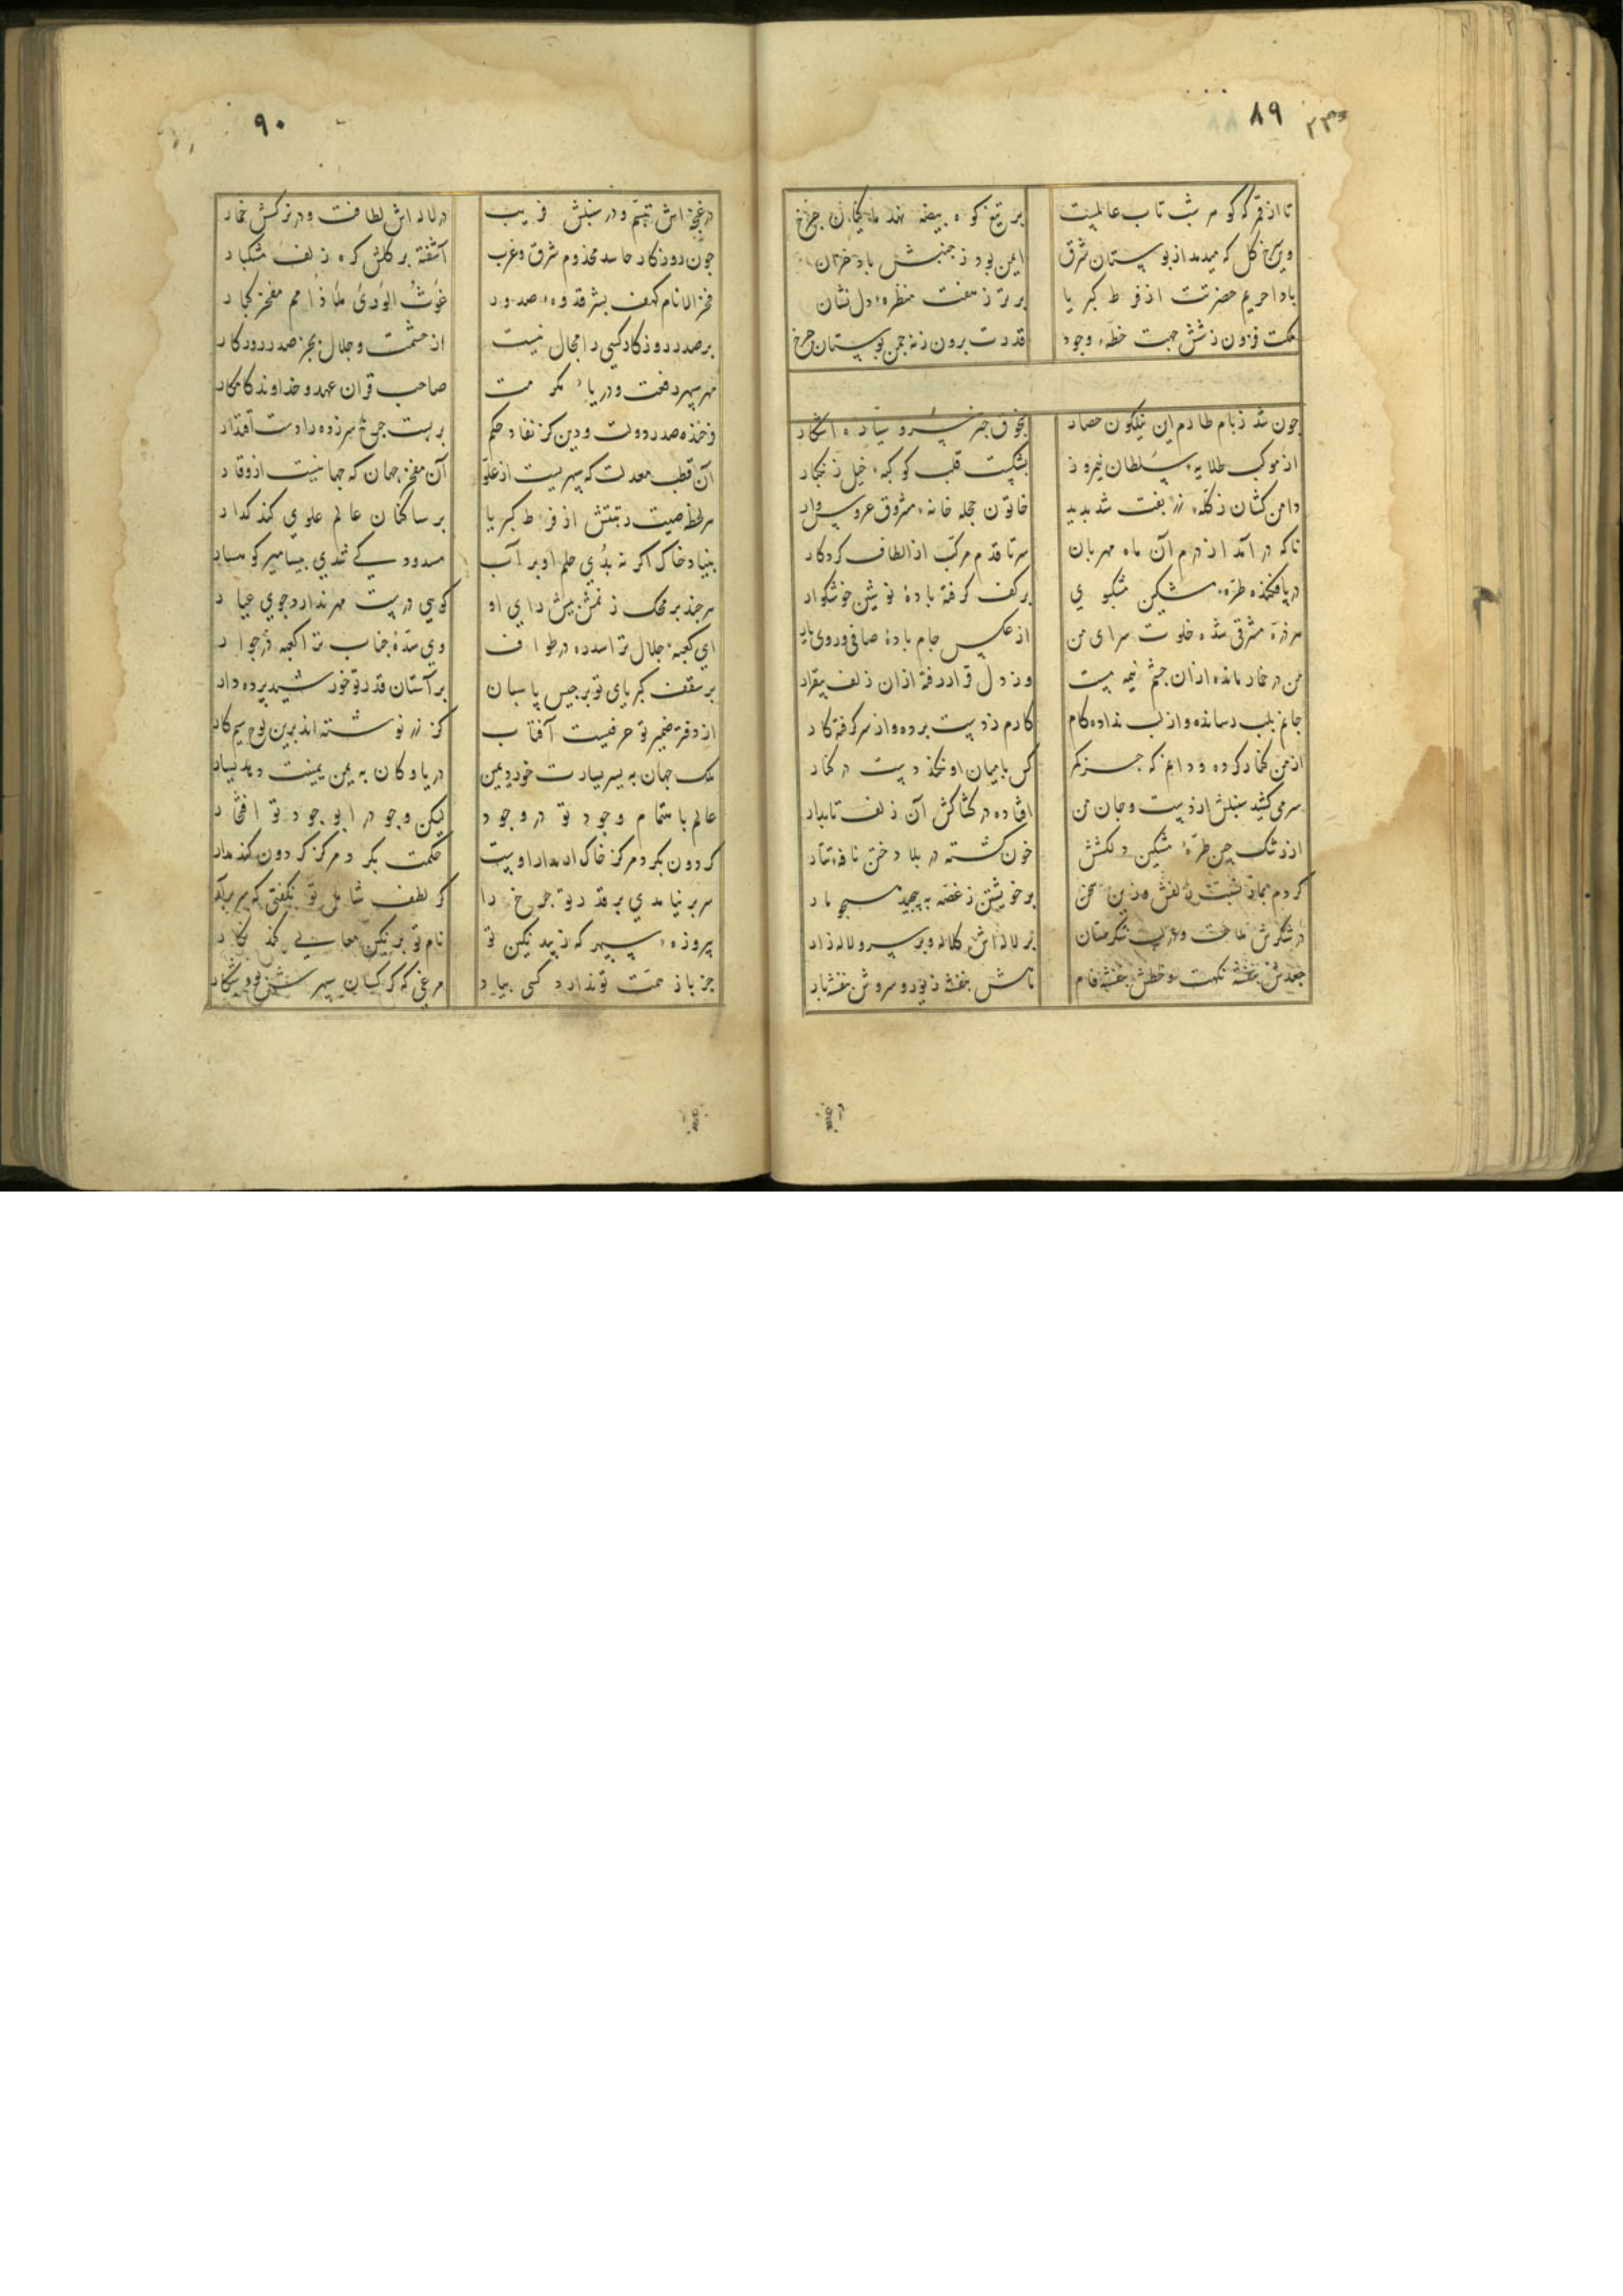 ۸۹
تا از قمر که گوهر شب تاب عالمیست
بر تیغ کوه بیضه نهد ماکیان چرخ
وین سرخ گل که میدمد از بوستان شرق
ایمن بود ز جنبش باد خزان
بادا حریم حضرتت از فرط کبریا
برتر ز هفت منظره دل نشان
ملکت فزون ز شش جهت خطهٔ وجود
قدرت برون ز نه چمن بوستان چرخ
چون شد ز بام طارم این نیلگون حصار
از موکب طلایهٔ سلطان نیمروز
بشکست قلب کوکبهٔ خیل زنگبار
دامن کشان ز کلهٔ زربفت شد پدید
خاتون حجله خانهٔ مشرق عروس وار
ناگه در آمد از درم آن ماه مهربان
سر تا قدم مرکب از الطاف کردگار
در پا فکنده طرهٔ مشکین مشکبوی
بر کف گرفته بادهٔ نوشین خوشگوار
هر ذره مشرقی شده خلوت سرای من
از عکس جام بادهٔ صافی و روی یار
من در خمار مانده از آن چشم نیمه مست
وز دل قرار رفته از آن زلف بیقرار
جانم بلب رسانده و از لب نداده کام
کارم ز دست برده و از سر گرفته کار
از من کنار کرده و دانم که جز کمر
کس با میان او نکند دست در کنار
سر می کشید سنبلش از دست و جان من
افتاده در کشاکش آن زلف تابدار
از رشک چین طرهٔ مشکین دلکشش
خون گشته در بلاد ختن نافهٔ تتار
بر خویشتن ز غصه به پیچید همچو مار
در شکرش ملاحت و در لب شکرستان
بر لاله اش کلاله و بر سرو لاله زار
جعدش بنفشه نکهت و خطش بنفشه فام
۹۰
در غنچه اش تبسم و در سنبلش فریب
در لاله اش لطافت و در نرگسش خمار
چون روزگار حاسد مخدوم شرق و غرب
آشفته بر گلش گره زلف مشکبار
فخر الانام کهف بشر قدوهٔ صدور
غوث الوری ملاذ امم مفخر کبار
بر صدر روزگار کسی را مجال نیست
از حشمت و جلال بجز صدر روزگار
مهر سپهر رفعت و دریای مکرمت
صاحب قران عهد و خداوند کامکار
فرخنده صدر دولت و دین کز نفاد حکم
بر بست چرخ سرزده را دست اقتدار
آن قطب معدلت که سپهریست از علو
آن مفخر جهان که جهانیست از وقار
هر لحظه صیت رتبتش از فرط کبریا
بر ساکنان عالم علوی کند گذار
بنیاد خاک اگر نه بدی حلم او بر آب
هر چند بر محک ز نمش بیش رای او
ای کعبهٔ جلال ترا سدره در طواف
وی سدهٔ جناب ترا کعبه در جوار
بر سقف کبریای تو برجیس پاسبان
بر آستان قدر تو خورشید پرده دار
از دفتر ضمیر تو حرفیست آفتاب
کز زر نوشته اند برین لوح سیم کار
ملک جهان به یسر یسارت خورد یمین
دریا و کان به یمن یمینت دهد یسار
عالم باهتمام وجود تو در وجود
لیکن وجود را بوجود تو افتخار
حکمت بگرد مرکز گردون کند مدار
سر بر نیامدی بر قدر تو چرخ را
گر لطف شامل تو نگفتی که سر بر آر
پیروزهٔ سپهر که زیبد نگین تو
نام تو بر نگین معالی کند نگار
جز باز همت تو ندارد کسی بیاد
مرغی که کرکسان سپهرش بود شکار